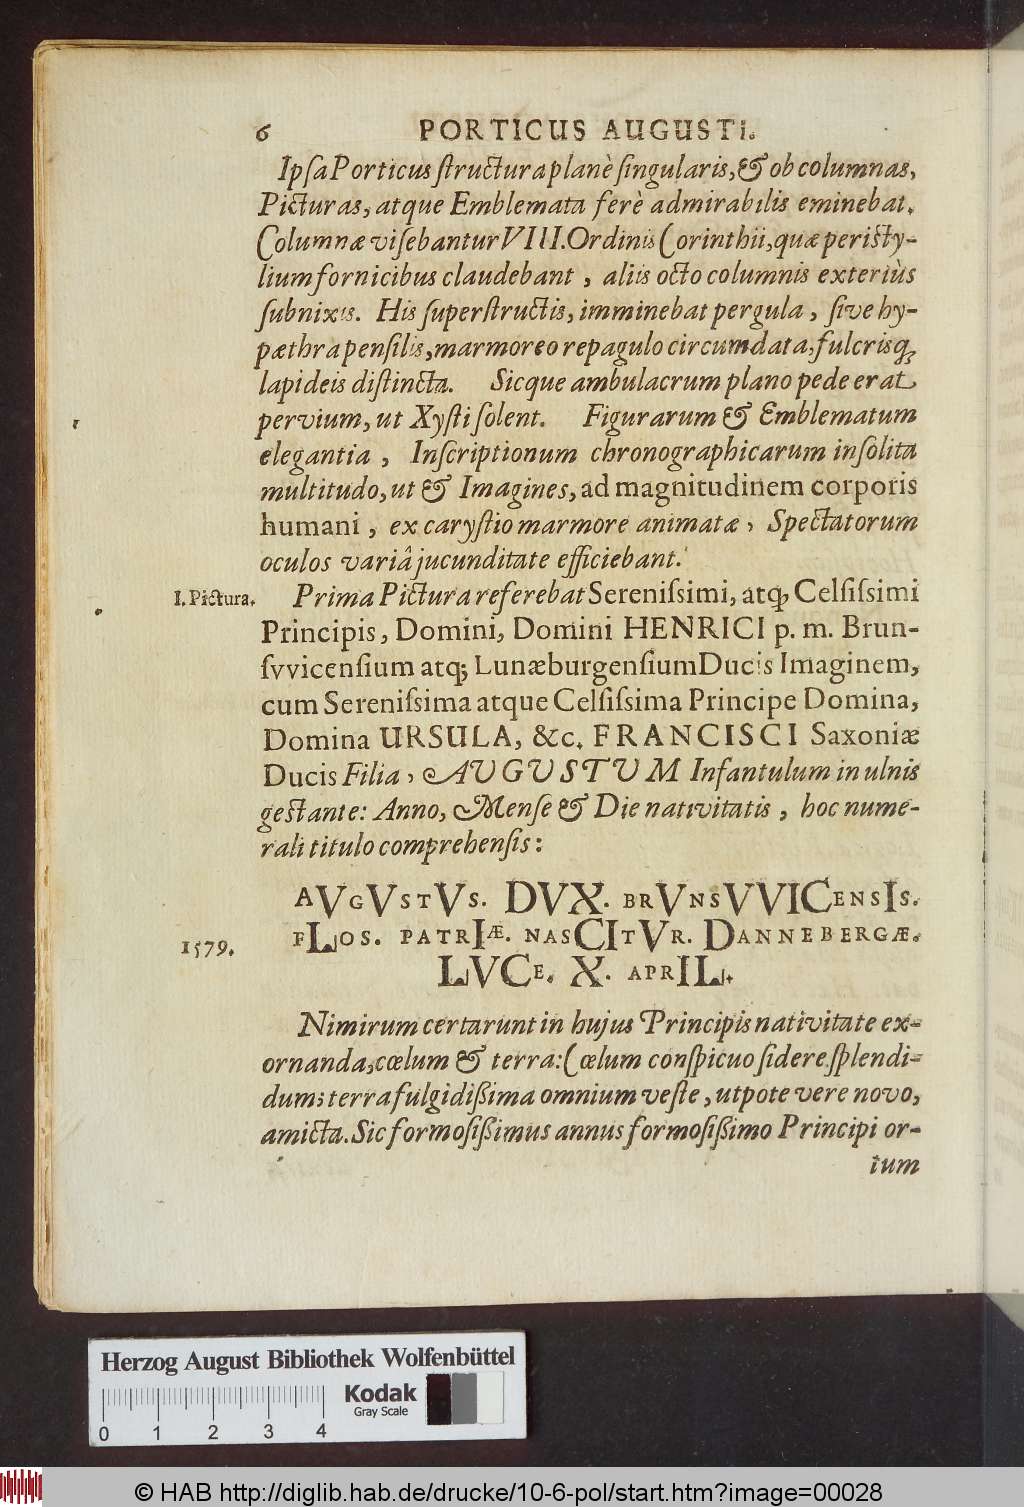 6 PORTICUS AUGUSTI.
Ipſa Porticus ſtructura planè ſingularis, & ob columnas,
Picturas, atque Emblemata ferè admirabilis eminebat.
Columnæ viſebantur VIII. Ordinis Corinthii, quæ periſty-
lium fornicibus claudebant, aliis octo columnis exteriùs
ſubnixis. His ſuperſtructis, imminebat pergula, ſive hy-
pæthra penſilis, marmoreo repagulo circumdata, fulcrisq;
lapideis diſtincta. Sicque ambulacrum plano pede erat
pervium, ut Xyſti ſolent. Figurarum & Emblematum
elegantia, Inſcriptionum chronographicarum inſolita
multitudo, ut & Imagines, ad magnitudinem corporis
humani, ex caryſtio marmore animatæ, Spectatorum
oculos variâ jucunditate efficiebant.
I. Pictura. Prima Pictura referebat Sereniſsimi, atq; Celſiſsimi
Principis, Domini, Domini HENRICI p. m. Brun-
ſvvicenſium atq; Lunæburgenſium Ducis Imaginem,
cum Sereniſsima atque Celſiſsima Principe Domina,
Domina URSULA, &c. FRANCISCI Saxoniæ
Ducis Filia, AUGUSTUM Infantulum in ulnis
geſtante: Anno, Menſe & Die nativitatis, hoc nume-
rali titulo comprehenſis:
AVGVSTVS. DVX. BRVNSVVICENSIS.
1579. FLOS. PATRIÆ. NASCITVR. DANNEBERGÆ.
LVCE. X. APRIL.
Nimirum certarunt in hujus Principis nativitate ex-
ornanda, cœlum & terra: Cœlum conſpicuo ſidere ſplendi-
dum; terra fulgidißima omnium veſte, utpote vere novo,
amicta. Sic formoſißimus annus formoſißimo Principi or-
tum
Herzog August Bibliothek Wolfenbüttel
Kodak
Gray Scale
0 1 2 3 4
© HAB http://diglib.hab.de/drucke/10-6-pol/start.htm?image=00028